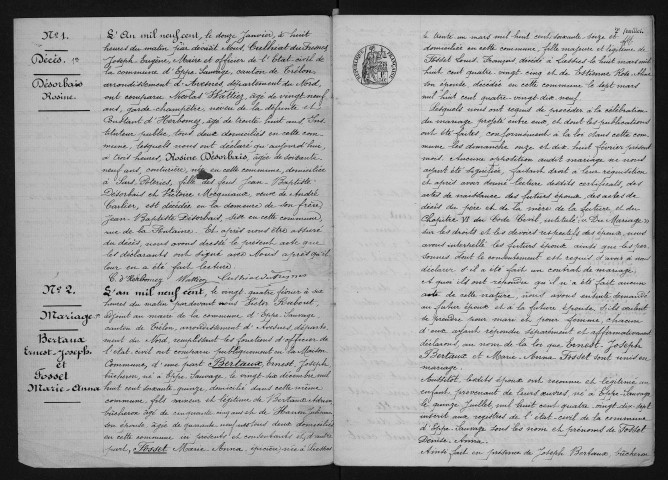 N° 1.
Décès.
Désorbais
Rosine.
L'An mil neuf cent, le douze Janvier, à huit
heures du matin par devant Nous,
Joseph Eugène, Maire et officier de l'Etat-civil de
la commune d'Eppe-Sauvage, canton de Trélon,
arrondissement d'Avesnes, département du Nord,
ont comparu Nicolas Wattiez, âgé de vingt-neuf
ans, garde champêtre, neveu de la défunte et
d'Herbomez, âgé de trente huit ans, Ins-
tituteur public, tous deux domiciliés en cette com-
mune, lesquels nous ont déclaré qu'aujourd'hui,
à trois heures, Rosine Désorbais, âgée de soixante
neuf ans, couturière, née en cette commune, domiciliée
à Sars-Poteries, fille des feus Jean Baptiste
Désorbais et Victoire Mocquiaux, veuve de André
Carlier, est décédée en la demeure de son frère,
Jean Baptiste Désorbais, sise en cette commune,
rue de la Fontaine. Et après nous être assuré
du décès, nous avons dressé le présent acte que
les déclarants ont signé avec Nous après qu'il
leur en a été fait lecture.
C. d'Herbomez Wattiez
N° 2.
Mariage
Bertaux
Ernest-Joseph.
et
Fosset
Marie-Anna
L'an mil neuf cent, le vingt quatre février à six
heures du matin par devant nous Victor
adjoint au maire de la commune d'Eppe-Sauvage
canton de Trélon, arrondissement d'Avesnes, départe-
ment du Nord, remplissant les fonctions d'officier de
l'état civil ont comparu publiquement en la Maison
Commune, d'une part Bertaux, Ernest, Joseph
bûcheron, né à Eppe-Sauvage, le vingt-six décembre mil
huit cent soixante quinze, domicilié dans cette même
commune, fils majeur et légitime de Bertaux
bûcheron âgé de cinquante cinq ans et de
son épouse, âgée de quarante neuf ans tous deux domiciliés
en cette commune ici présents et consentants et, d'autre
part, Fosset, Marie Anna, née à
7e feuillet.
le trente un mars mil huit cent soixante onze et
domiciliée en cette commune, fille majeure et légitime de
Fosset Louis François, décédé à le huit mars mil
huit cent quatre vingt cinq et de Estienne Rose
son épouse décédée en cette commune le sept mars
mil huit cent quatre vingt dix neuf.
Lesquels nous ont requis de procéder à la célébration
du mariage projeté entre eux et dont les publications
ont été faites, conformément à la loi dans cette com-
mune les dimanche onze et dix huit février présent
mois. Aucune opposition audit mariage ne nous
ayant été signifiée, faisant droit à leur réquisition
et après avoir donné lecture desdits certificats, des
actes de naissance des futurs époux, des actes de
décès du père et de la mère de la future et du
Chapitre VI du Code Civil, intitulé : « Du Mariage »
sur les droits et les devoirs respectifs des époux, nous
avons interpellé les futurs époux ainsi que les per-
sonnes dont le consentement est requis d'avoir à nous
déclarer s'il a été fait un contrat de mariage.
À quoi ils ont répondu qu'il n'a été fait aucun
acte de cette nature, nous avons ensuite demandé
au futur époux et à la future épouse, s'ils veulent
se prendre pour mari et pour femme, chacun
d'eux ayant répondu séparément et affirmativement
déclarons, au nom de la loi que Ernest Joseph
Bertaux et Marie Anna Fosset sont unis en
mariage.
Aussitôt lesdits époux ont reconnu et légitimé un
enfant provenant de leurs œuvres, né à Eppe-Sauvage
le quinze juillet, mil huit cent quatre vingt dix sept
inscrit aux registres de l'état-civil de la commune
d'Eppe-Sauvage sous les nom et prénoms de Fosset
Denise Anna.
Ainsi fait en présence de Joseph Bertaux, bûcheron